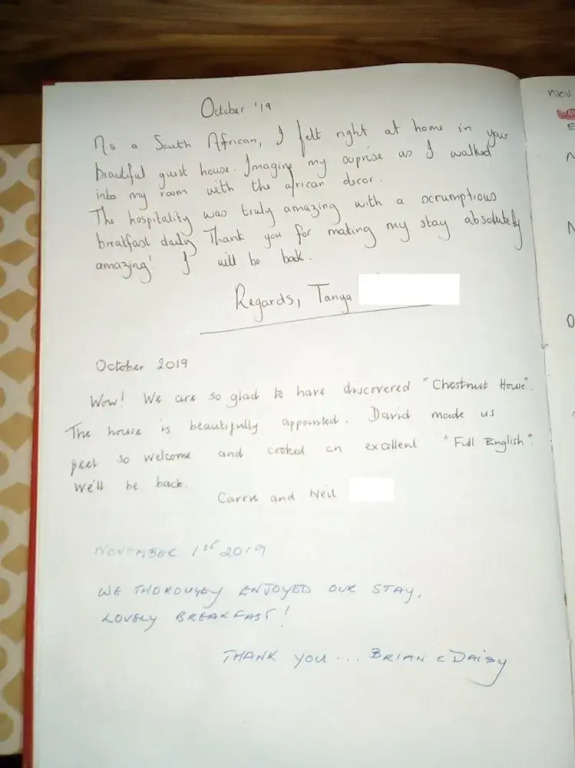 October '19
As a South African, I felt right at home in your
beautiful guest house. Imagine my suprise as I walked
into my room with the african decor.
The hospitality was truly amazing with a scrumptious
breakfast daily. Thank you for making my stay absolutely
amazing! I will be back.
Regards, Tanya
October 2019
Wow! We are so glad to have discovered "Chestnut House".
The house is beautifully appointed. David made us
feel so welcome and cooked an excellent "Full English".
We'll be back.
Carrie and Neil
NOVEMBER 1ST 2019
WE THOROUGHLY ENJOYED OUR STAY,
LOVELY BREAKFAST!
THANK YOU... BRIAN & DAISY
Nov